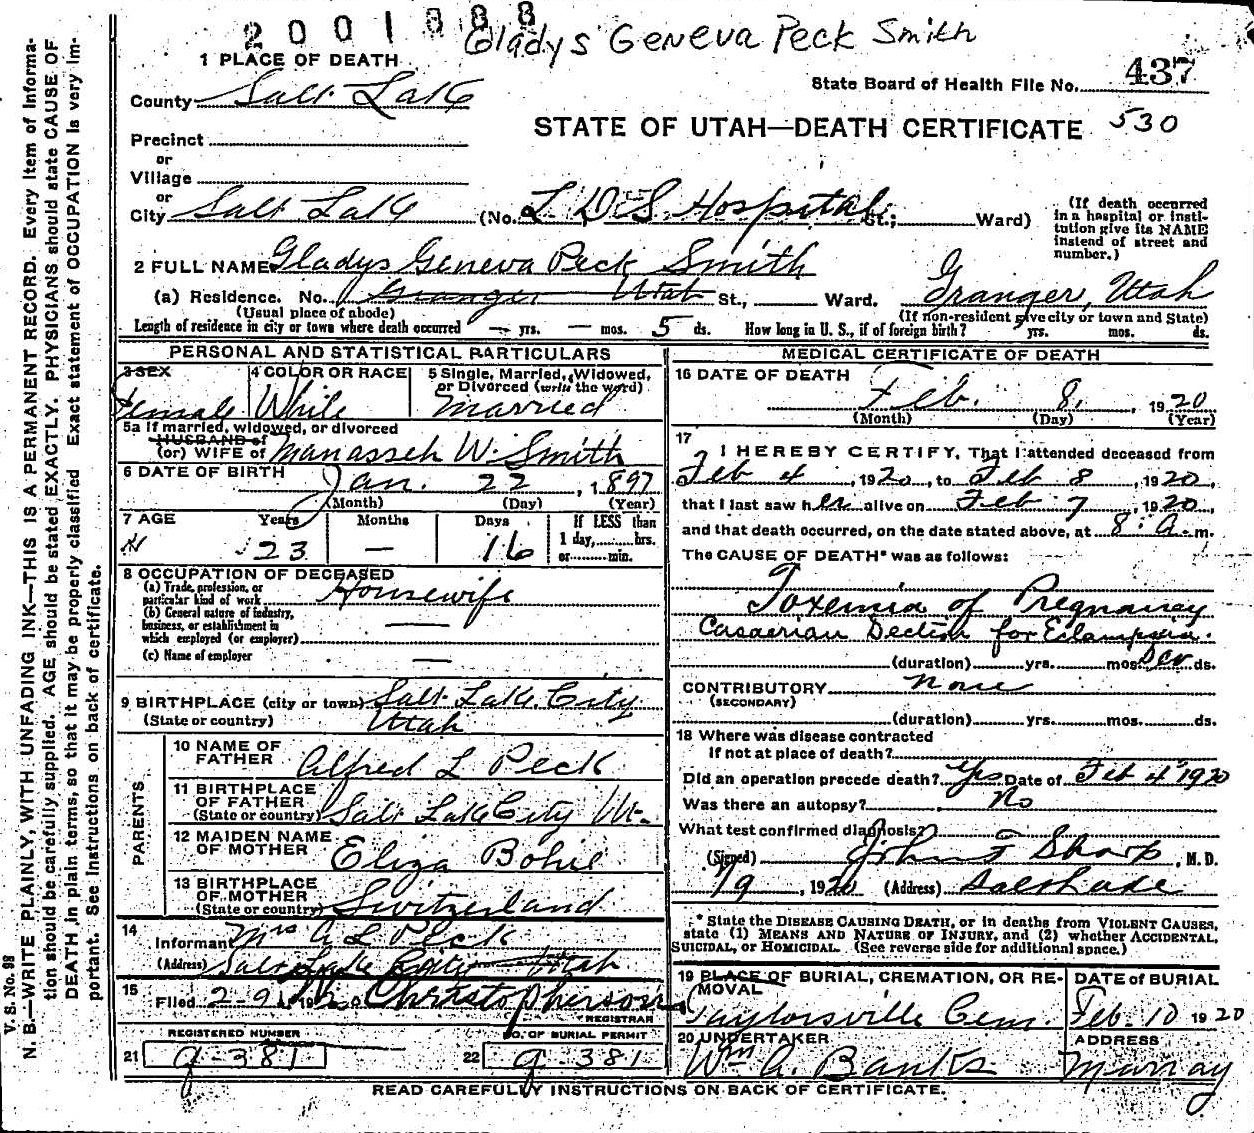 2001888
Gladys Geneva Peck Smith
1 PLACE OF DEATH
State Board of Health File No. 437
County Salt Lake
STATE OF UTAH—DEATH CERTIFICATE 530
Precinct
or
Village
or
City Salt Lake (No. L.D.S. Hospital St.; Ward)
(If death occurred in a hospital or insti-
tution give its NAME
instead of street and
number.)
2 FULL NAME Gladys Geneva Peck Smith
(a) Residence. No. Granger Utah St., Ward. Granger, Utah
(Usual place of abode) (If non-resident give city or town and State)
Length of residence in city or town where death occurred — yrs. — mos. 5 ds. How long in U. S., if of foreign birth? yrs. mos. ds.
PERSONAL AND STATISTICAL PARTICULARS
3 SEX
Female
4 COLOR OR RACE
White
5 Single, Married, Widowed,
or Divorced (write the word)
Married
5a If married, widowed, or divorced
HUSBAND of
(or) WIFE of Manasseh W. Smith
6 DATE OF BIRTH Jan. 22, 1897
(Month) (Day) (Year)
7 AGE Years Months Days If LESS than
1 day, hrs.
or min.
23 — 16
8 OCCUPATION OF DECEASED
(a) Trade, profession, or
particular kind of work Housewife
(b) General nature of industry,
business, or establishment in
which employed (or employer) —
(c) Name of employer —
9 BIRTHPLACE (city or town) Salt Lake City
(State or country) Utah
PARENTS
10 NAME OF
FATHER Alfred L Peck
11 BIRTHPLACE
OF FATHER
(State or country) Salt Lake City Ut.
12 MAIDEN NAME
OF MOTHER Eliza Bohie
13 BIRTHPLACE
OF MOTHER
(State or country) Switzerland
14
Informant Mrs A L Peck
(Address) Salt Lake City Utah
15
Filed 2-9 19 Christopherson
REGISTRAR
REGISTERED NUMBER
21 g-381
NO. OF BURIAL PERMIT
22 g 381
MEDICAL CERTIFICATE OF DEATH
16 DATE OF DEATH
Feb. 8, 1920
(Month) (Day) (Year)
17
I HEREBY CERTIFY, That I attended deceased from
Feb 4, 1920, to Feb 8, 1920,
that I last saw her alive on Feb 7, 1920,
and that death occurred, on the date stated above, at 8: a.m.
The CAUSE OF DEATH* was as follows:
Toxemia of Pregnancy
Casaerian Section for Eclampsia.
(duration) yrs. mos. ds.
CONTRIBUTORY none
(SECONDARY)
(duration) yrs. mos. ds.
18 Where was disease contracted
if not at place of death?
Did an operation precede death? Yes Date of Feb 4" 1920
Was there an autopsy? No
What test confirmed diagnosis?
(Signed) John F Sharp, M. D.
/9, 1920 (Address) Salt Lake
* State the DISEASE CAUSING DEATH, or in deaths from VIOLENT CAUSES,
state (1) MEANS AND NATURE OF INJURY, and (2) whether ACCIDENTAL,
SUICIDAL, or HOMICIDAL. (See reverse side for additional space.)
19 PLACE OF BURIAL, CREMATION, OR RE-
MOVAL
Taylorsville Cem.
DATE OF BURIAL
Feb. 10 1920
20 UNDERTAKER
Wm A. Banks
ADDRESS
Murray
READ CAREFULLY INSTRUCTIONS ON BACK OF CERTIFICATE.
V. S. No. 98
N. B.—WRITE PLAINLY, WITH UNFADING INK—THIS IS A PERMANENT RECORD. Every item of informa-
tion should be carefully supplied. AGE should be stated EXACTLY. PHYSICIANS should state CAUSE OF
DEATH in plain terms, so that it may be properly classified. Exact statement of OCCUPATION is very im-
portant. See instructions on back of certificate.